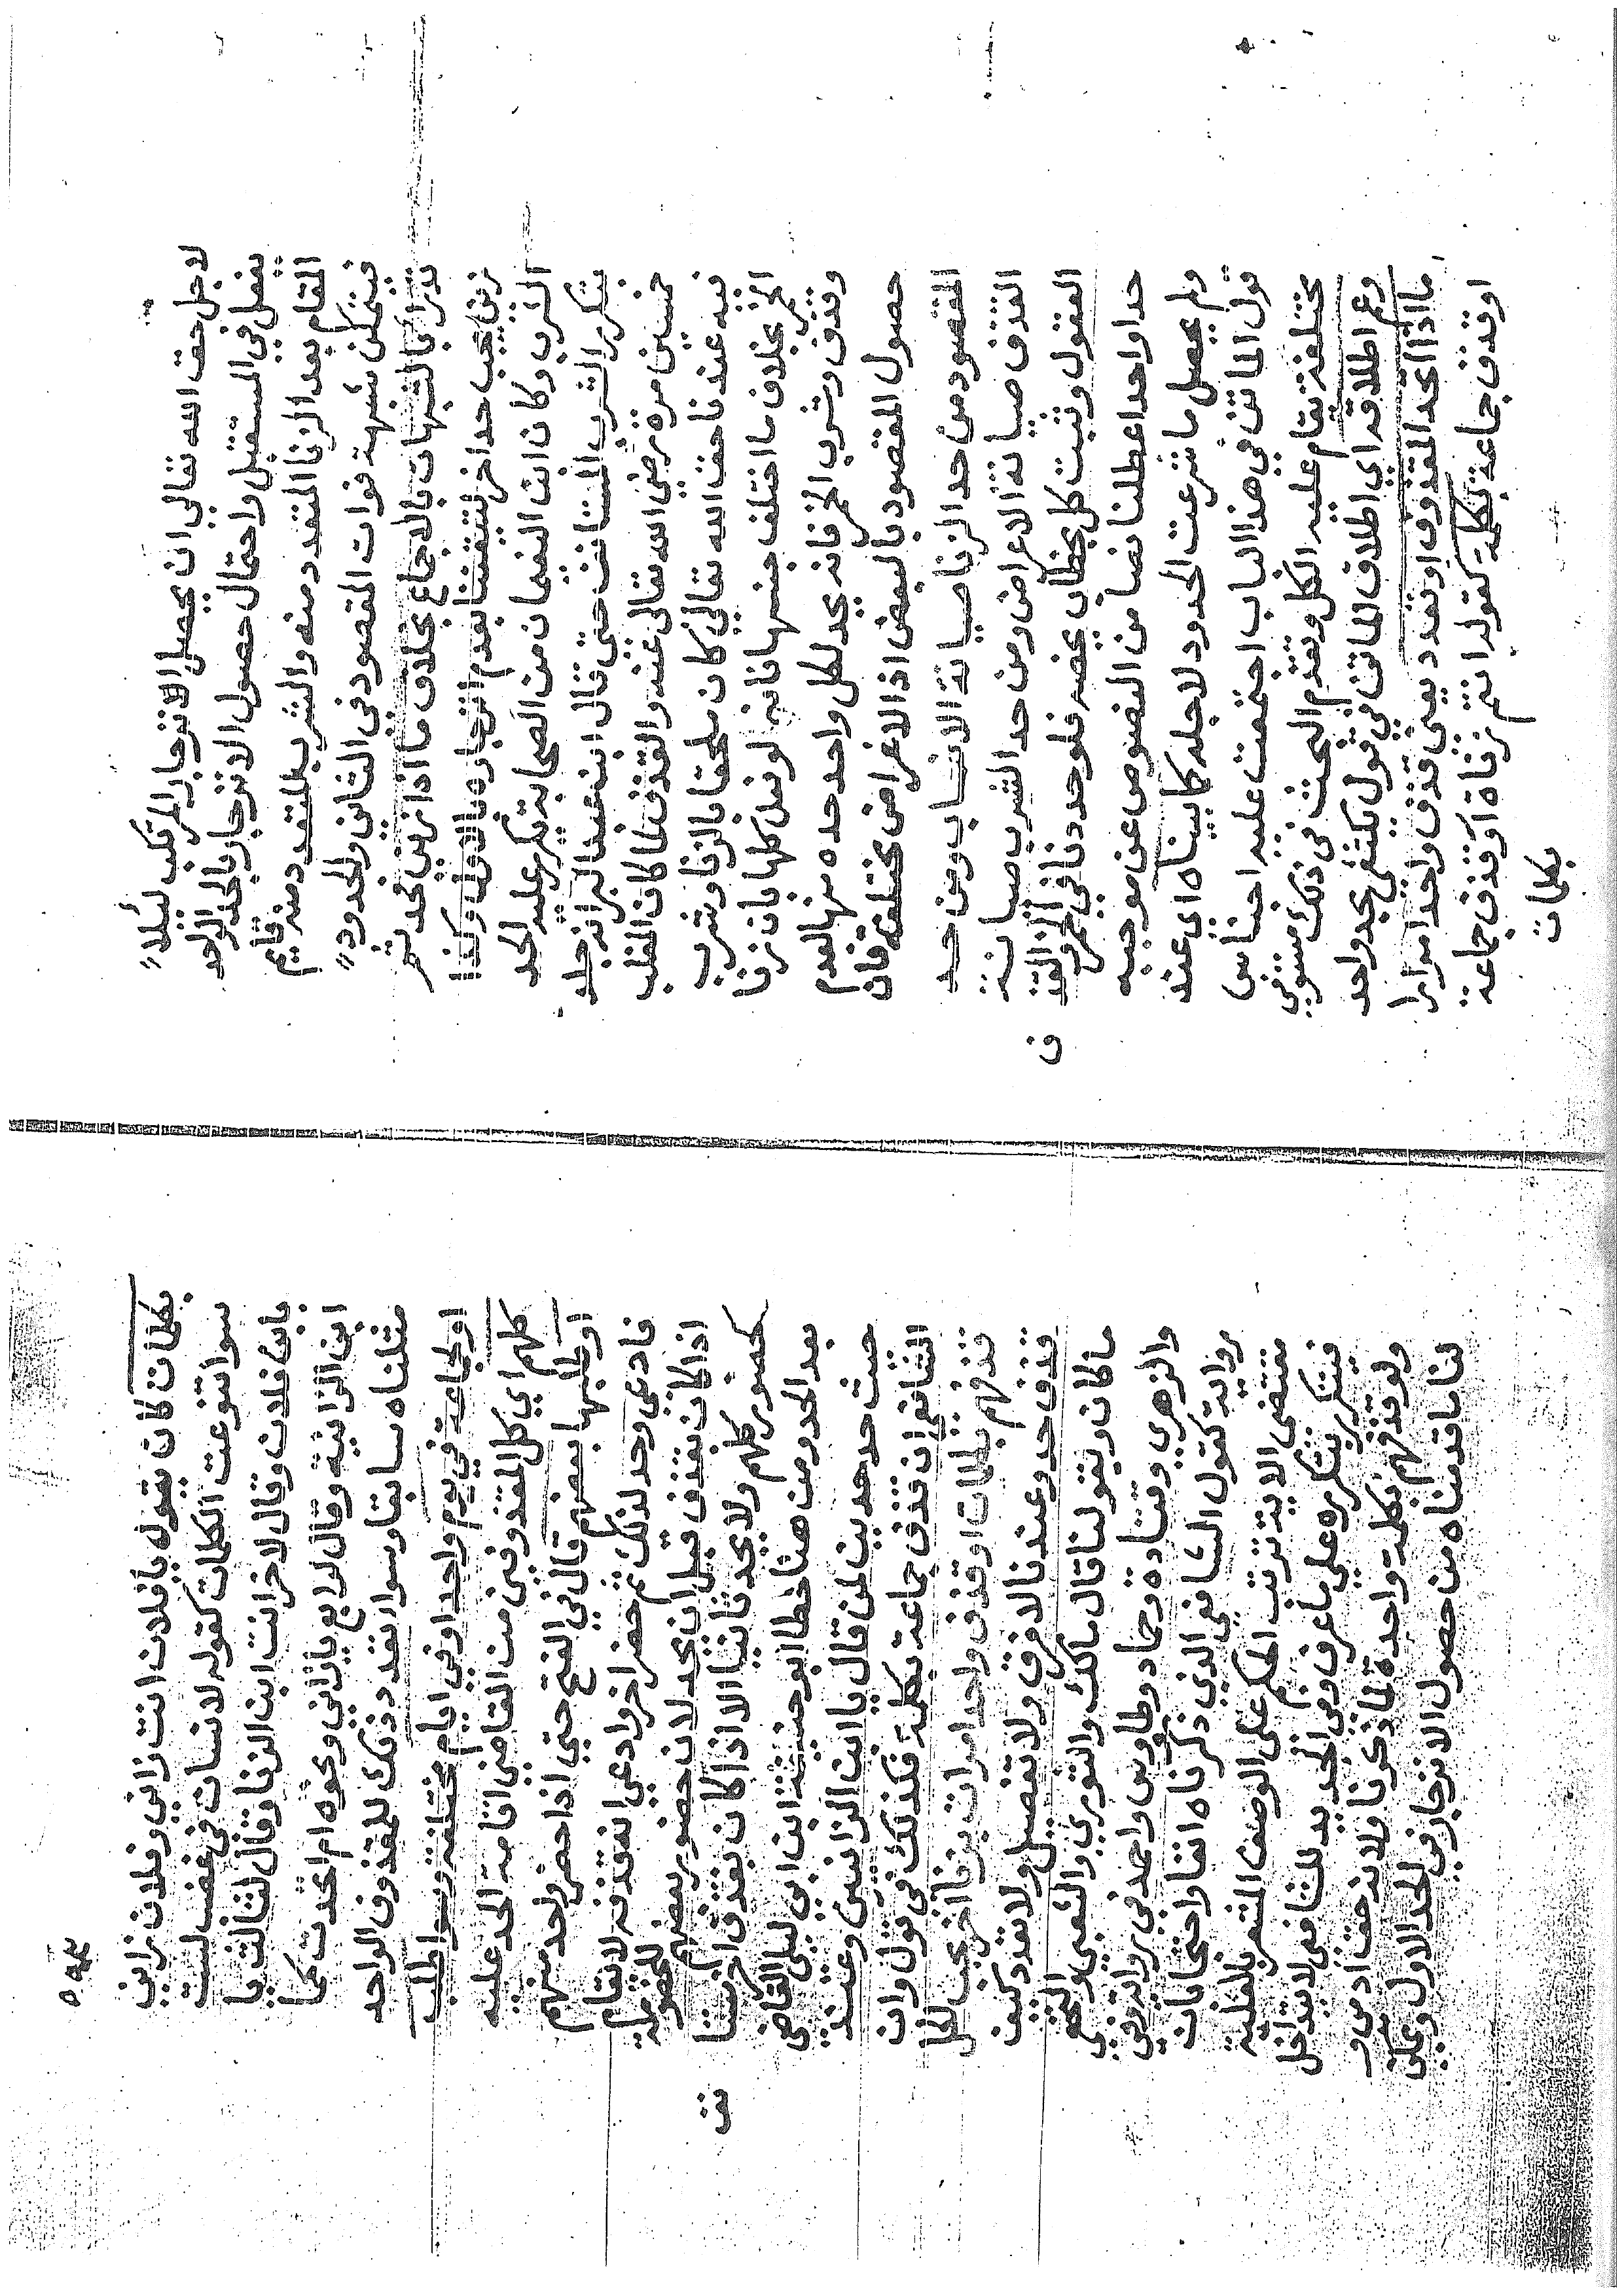 لاجل حق الله تعالي ان يحصل الانزجار المرتكب لئلا
يفعل في المستقبل واحتمال حصول الانزجار بالحد الواحد
القام بعد الزنا المتعدد منه والشرب المتعدد منه قايم
فيتمكن شبهة فوات المقصود في الثاني والحدود
تدرا بالشبهات بالاجماع بخلاف ما اذا زني فحد ثم
زني يجب حد اخر لتيقننا بعدم انزجاره بالاول وكذا
الشرب وكان ابن النعيمان من الصحابة تكرر عليه الحد
بتكرر الشرب المستانف حتي قال ابن عبد البر انه جلد
خمسين مرة رضي الله تعالي عنه والقذف لما كان المغلب
فيه عندنا حق الله تعالي كان ملحقا بالزنا وشرب
الخمر بخلاف ما اختلف جنسها فانه لو فعل كلها بان زنا
وقذف وشرب الخمر فانه يحد لكل واحد حده منها لعدم
حصول المقصود بالبعض اذ الاغراض مختلفة فان
المقصود من حد الزنا صيانة الانساب ومن حد
القذف صيانة الاعراض ومن حد الشرب صيانة
العقول وثبت كل بخطاب يخصه فلو حددنا في الخمر القذ
ف
حدا واحدا عطلنا نصا من النصوص عن موجبه
ولم يحصل ما شرعت الحدود لاجله كما بيناه اي عند
قول الماتن في هذا الباب اجتمعت عليه اجناس
مختلفة تقام عليه الكل وتقدم البحث في ذلك مستوفي
وعم اطلاقه اي اطلاق الماتن في قول يكتفي بحد واحد
ما اذا اتحد المقذوف او تعدد يعني قذف واحدا مرارا
او قذف جماعة بكلمة كقوله انتم زناة او قذف جماعة
بكلمات
٥٩٤
بكلمات كان يقوله يافلان انت زاني وفلان زاني
سوا تنوعت الكلمات كقوله لانسان في غضب لست
بابن فلان وقال لاخر انت ابن الزنا وقال لثالث يا
ابن الزانية وقال لرابع يازاني ونحوه ام اتحدت كما
مثلناه سابقا وسوا تعدد ذلك للمقذوف الواحد
او لجماعة في يوم واحد او في ايام مختلفة وسوا طلب
كلهم اي كل المقذوفين من القاضي اقامة الحد عليه
او طلبها بعضهم قال في الفتح حتي اذا حضر واحد منهم
فادعي وحد لذلك ثم حضر اخر وادعي انه قذفه لا تقام
اذا كان بقذف قبل ان يحد لان حضور بعضهم للخصومة
كحضور كلهم ولا يحد ثانيا الا اذا كان بقذف اخر مستا
نف
بعد الحد ومن هنا خطا ابو حنيفة ابن ابي ليلي القاضي
حيث حد حدين لمن قال يا ابن الزانيين وعند
الشافعي ان قذف جماعة بكلمة فكذلك في قول وان
قذفهم بكلمات او قذف واحدا مرات بزنا اخر يجب لكل
قذف حد وعندنا لا فرق ولا تفصيل ولا تعدد كيف
ما كان وبقولنا قال مالك والثوري والشعبي والنخعي
والزهري وقتادة وحماد وطاوس واحمد في رواية وفي
رواية كقول الشافعي الذي ذكرناه انفا واحتجا بان
مقتضي الاية ترتب الحكم علي الوصف المشعر بالعلية
فيتكرر بتكرره علي ما عرف وفي الجديد للشافعي لا يتداخل
ولو قذفهم بكلمة واحدة لما ذكرنا ولانه حق ادمي و
لنا ما قدمناه من حصول الانزجار في الحد الاول ويمكن